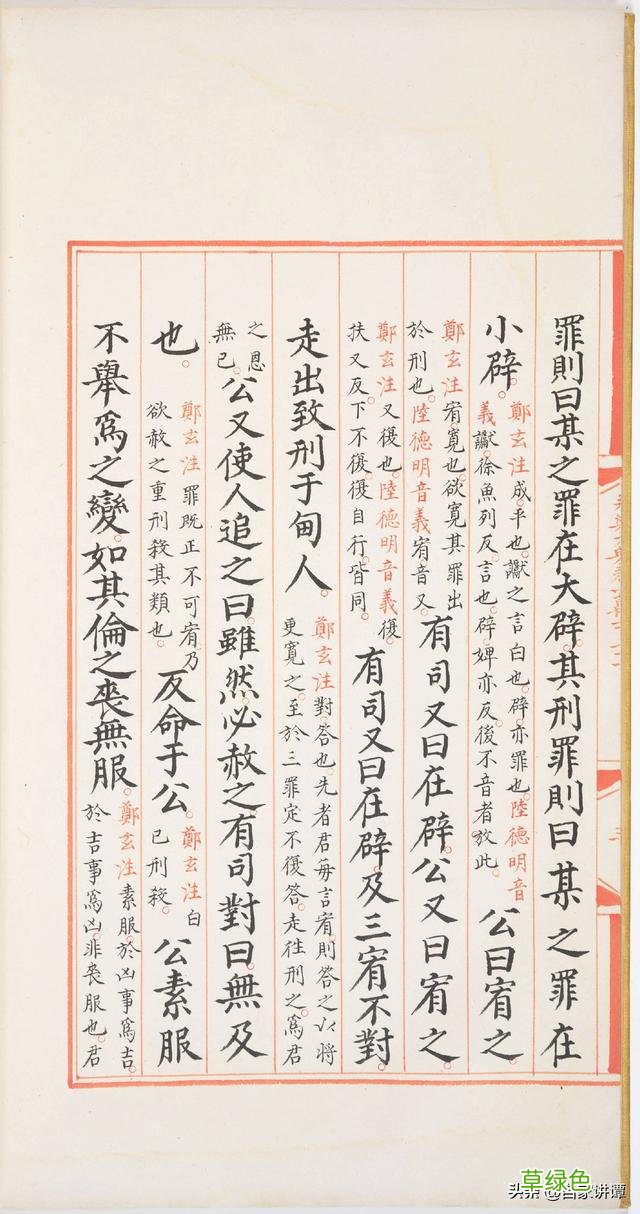 罪則曰某之罪在大辟。其刑罪則曰某之罪在
小辟。鄭玄注成。平也。讞之言白也。辟。亦罪也。陸德明音義讞。徐魚列反。言也。辟。婢亦反。後不音者放此。公曰宥之。
鄭玄注宥。寬也。欲寬其罪出於刑也。陸德明音義宥音又。有司又曰在辟。公又曰宥之。
鄭玄注又。復也。陸德明音義復。扶又反。下不復。復自行。皆同。有司又曰在辟。及三宥不對。
走出致刑于甸人。鄭玄注對。答也。先者君每言宥。則答之以將更寬之。至於三罪定不復答。走往刑之。爲君
之恩無已。公又使人追之曰。雖然。必赦之。有司對曰。無及
也。鄭玄注罪既正不可宥。乃欲赦之重刑殺其類也。反命于公。鄭玄注白已刑殺。公素服
不舉爲之變。如其倫之喪無服。鄭玄注素服。於凶事爲吉。於吉事爲凶。非喪服也。君
草绿色
头条